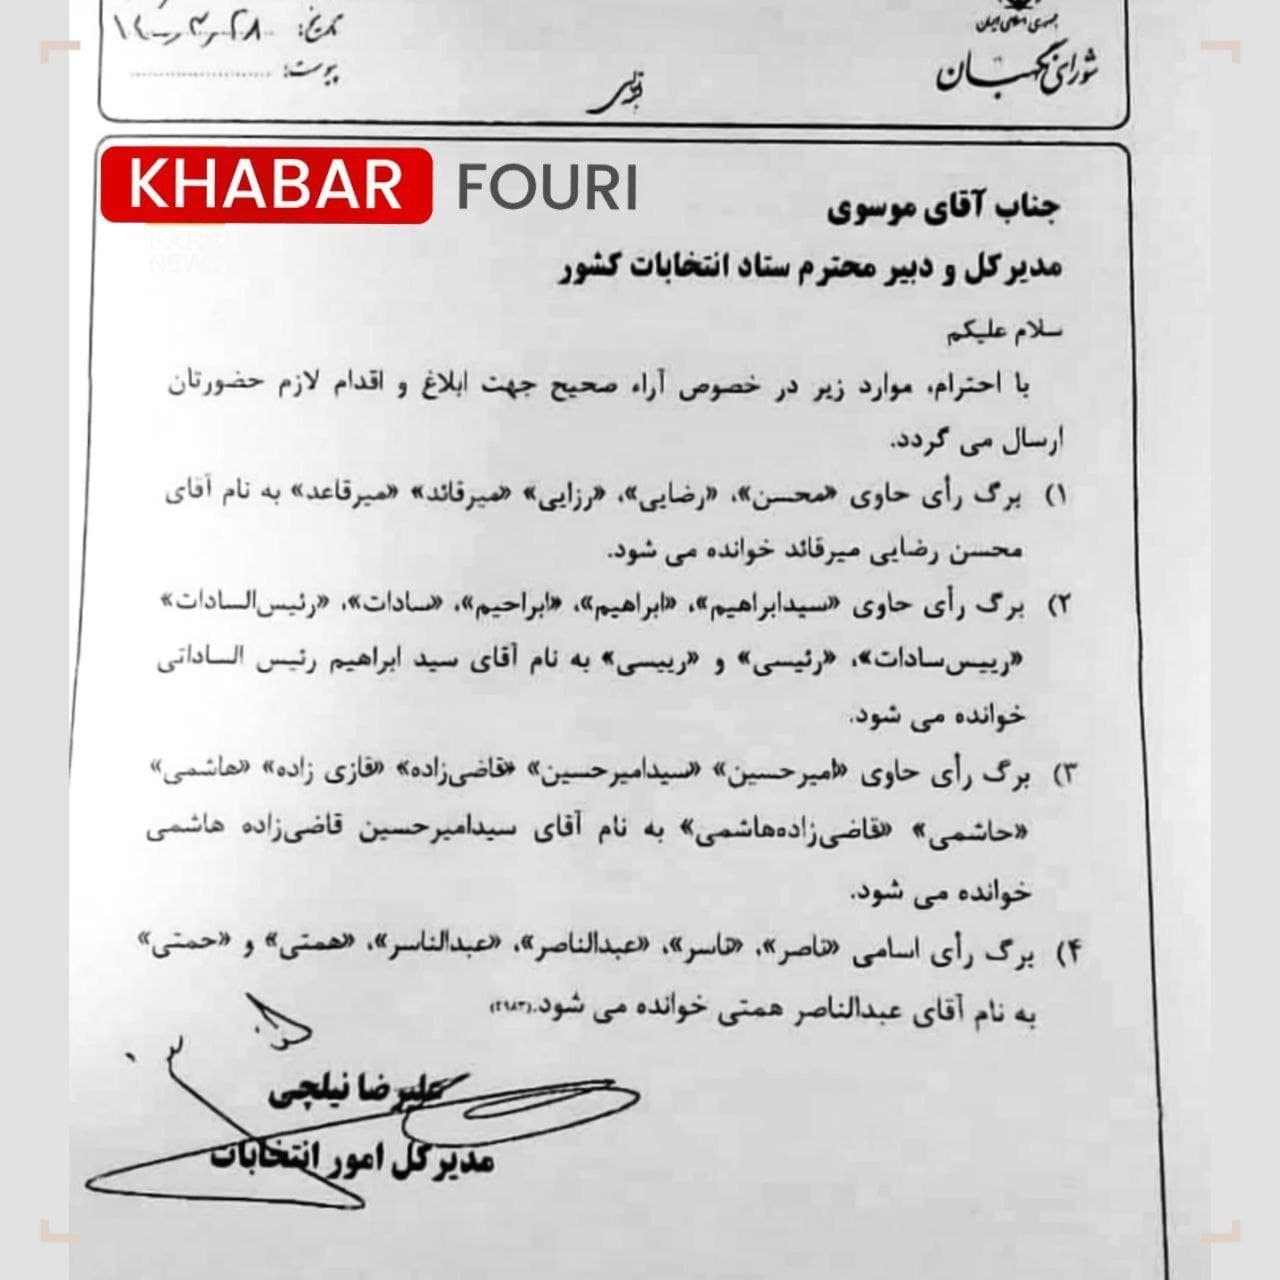 جمهوری اسلامی ایران
شورای نگهبان
تاریخ: ۱۴۰۰/۳/۲۸
پیوست:
بسمه تعالی
KHABAR FOURI
جناب آقای موسوی
مدیرکل و دبیر محترم ستاد انتخابات کشور
سلام علیکم
با احترام، موارد زیر در خصوص آراء صحیح جهت ابلاغ و اقدام لازم حضورتان
ارسال می گردد.
۱) برگ رأی حاوی «محسن»، «رضایی»، «رزایی» «میرقائد» «میرقاعد» به نام آقای
محسن رضایی میرقائد خوانده می شود.
۲) برگ رأی حاوی «سیدابراهیم»، «ابراهیم»، «ابراحیم»، «سادات»، «رئیس‌السادات»
«رییس‌سادات»، «رئیسی» و «رییسی» به نام آقای سید ابراهیم رئیس الساداتی
خوانده می شود.
۳) برگ رأی حاوی «امیرحسین» «سیدامیرحسین» «قاضی‌زاده» «قازی زاده» «هاشمی»
«حاشمی» «قاضی‌زاده‌هاشمی» به نام آقای سیدامیرحسین قاضی‌زاده هاشمی
خوانده می شود.
۴) برگ رأی اسامی «ناصر»، «ناسر»، «عبدالناصر»، «عبدالناسر»، «همتی» و «حمتی»
به نام آقای عبدالناصر همتی خوانده می شود.(۲۹۸۳)
علیرضا نیلچی
مدیرکل امور انتخابات